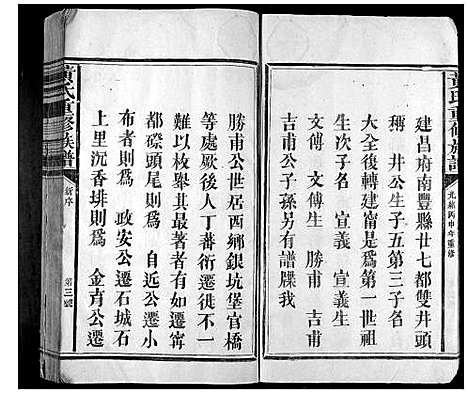 黃氏重修族譜
光緒丙申年重修
建昌府南豐縣廿七都雙井頭
稱 井公生子五第三子名
大全後轉建甯是為第一世祖
生次子名 宣義 宣義生
文傅 文傅生 勝甫 吉甫
吉甫公子孫另有譜牒我
勝甫公世居西鄉銀坑堡官橋
等處厥後人丁蕃衍遷徙不一
難以枚舉其最著者則為遷甯
都礤頭尾則為 自近公遷小
布者則為 政安公遷石城石
上里沉香排則為 金育公遷
黃氏重修族譜
新序
第三號